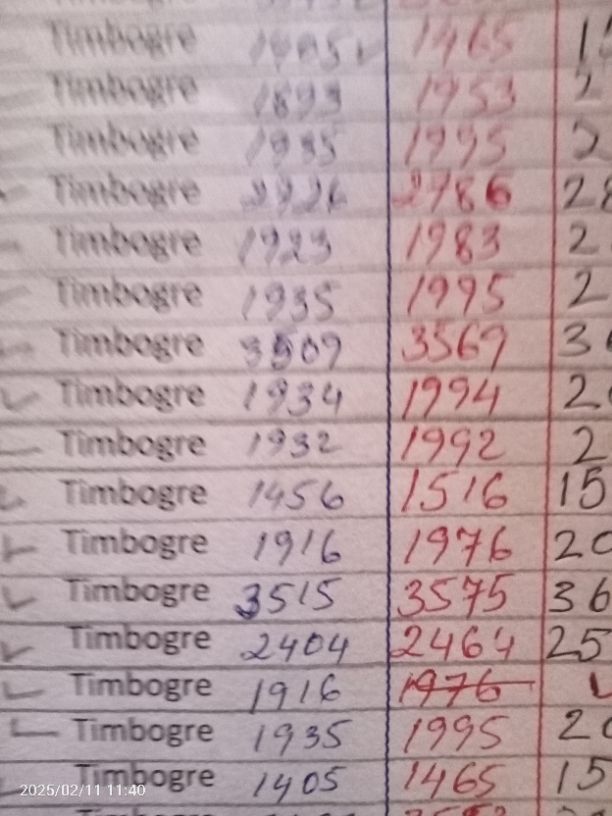 Timbogre 1405 ✓ 1465
Timbogre 1893 1953 2
Timbogre 1935 1995 2
Timbogre 2726 2786 28
Timbogre 1923 1983 2
Timbogre 1935 1995 2
Timbogre 3509 3569 36
Timbogre 1934 1994 20
Timbogre 1932 1992 2
Timbogre 1456 1516 15
Timbogre 1916 1976 20
Timbogre 3515 3575 36
Timbogre 2404 2464 25
Timbogre 1916 1976
Timbogre 1935 1995 20
Timbogre 1405 1465 15
2025/02/11 11:40